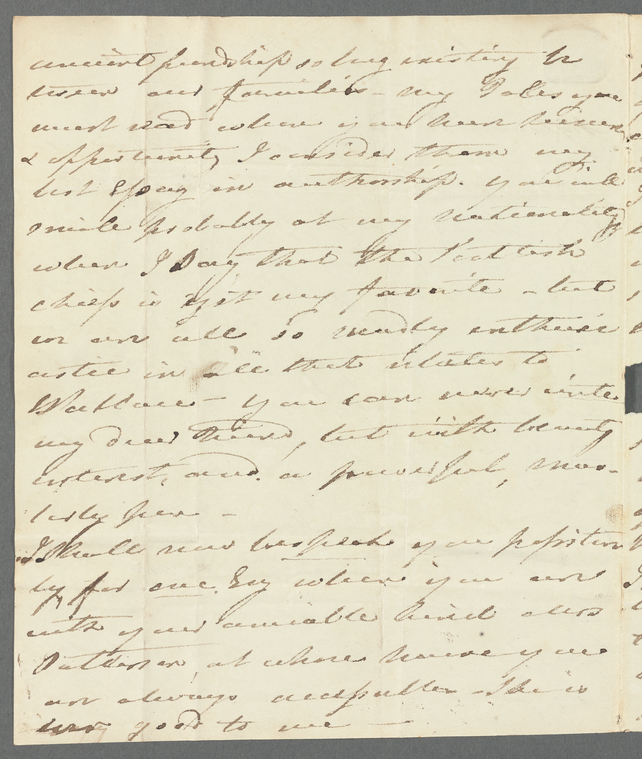 ancient friendship so long existing be
tween our families – my Tales you
must read when you have leisure
& opportunity I consider them my
best Essay in authorship. You will
smile probably at my nationality
when I say that the Scottish
chiefs is yet my favorite – but
we are all so madly enthusi
astic in all that relates to
Wallace – You can never write
my dear friend, but with beauty
interest, and a powerful, mas-
terly pen –
I shall now bespeak you positive
ly for one day when you are
with your amiable kind Mrs
Patterson at whose house you
are always acceptable – She is
very good to me —